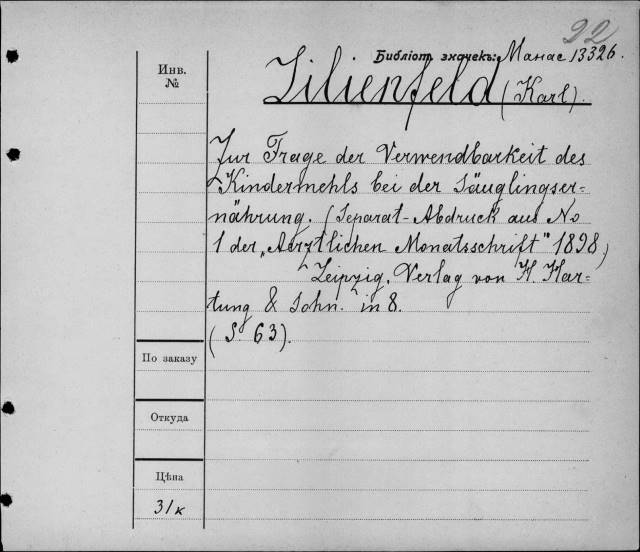 92
Библіот. значекъ: Манас 13326.
Инв.
№
Lilienfeld (Karl).
Zur Frage der Verwendbarkeit des
Kindermehls bei der Säuglingser=
nährung. (Separat-Abdruck aus No
1 der „Aerztlichen Monatsschrift" 1898)
Leipzig. Verlag von H. Har=
tung & Sohn. in 8.
(S. 63).
По заказу
Откуда
Цѣна
31к